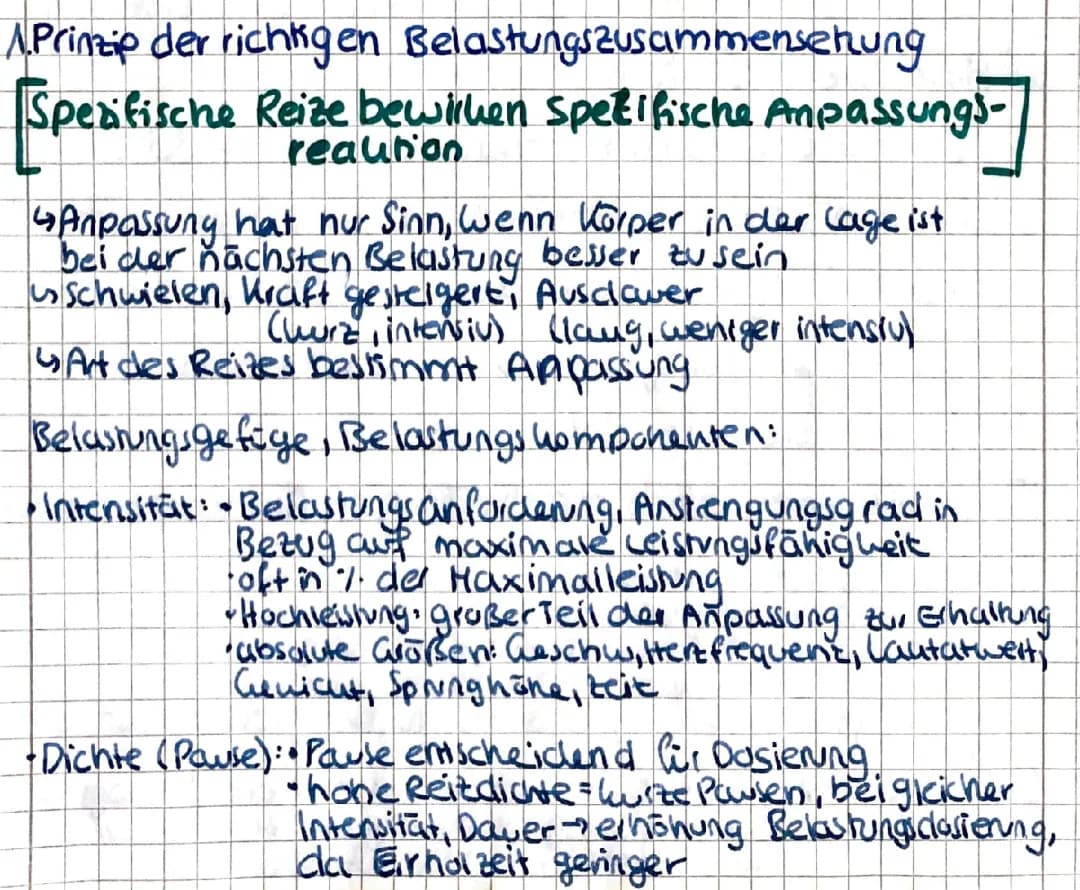 1.Prinzip der richtigen Belastungszusammensetzung
[Spezifische Reize bewirken spezifische Anpassungs-
reaktion]
↳Anpassung hat nur Sinn, wenn Körper in der Lage ist
bei der nächsten Belastung besser zu sein
↳Schwielen, Kraft gesteigert, Ausdauer
(kurz, intensiv) (lang, weniger intensiv)
↳Art des Reizes bestimmt Anpassung
Belastungsgefüge, Belastungskomponenten:
• Intensität: • Belastungsanforderung, Anstrengungsgrad in
Bezug auf maximale Leistungsfähigkeit
• oft in % der Maximalleistung
• Hochleistung: großer Teil der Anpassung zur Erhaltung
• absolute Größen: Geschw., Herzfrequenz, Laktatwert,
Gewicht, Sprunghöhe, Zeit
• Dichte (Pause): • Pause entscheidend für Dosierung
• hohe Reizdichte = kurze Pausen, bei gleicher
Intensität, Dauer → erhöhung Belastungsdosierung,
da Erholzeit geringer